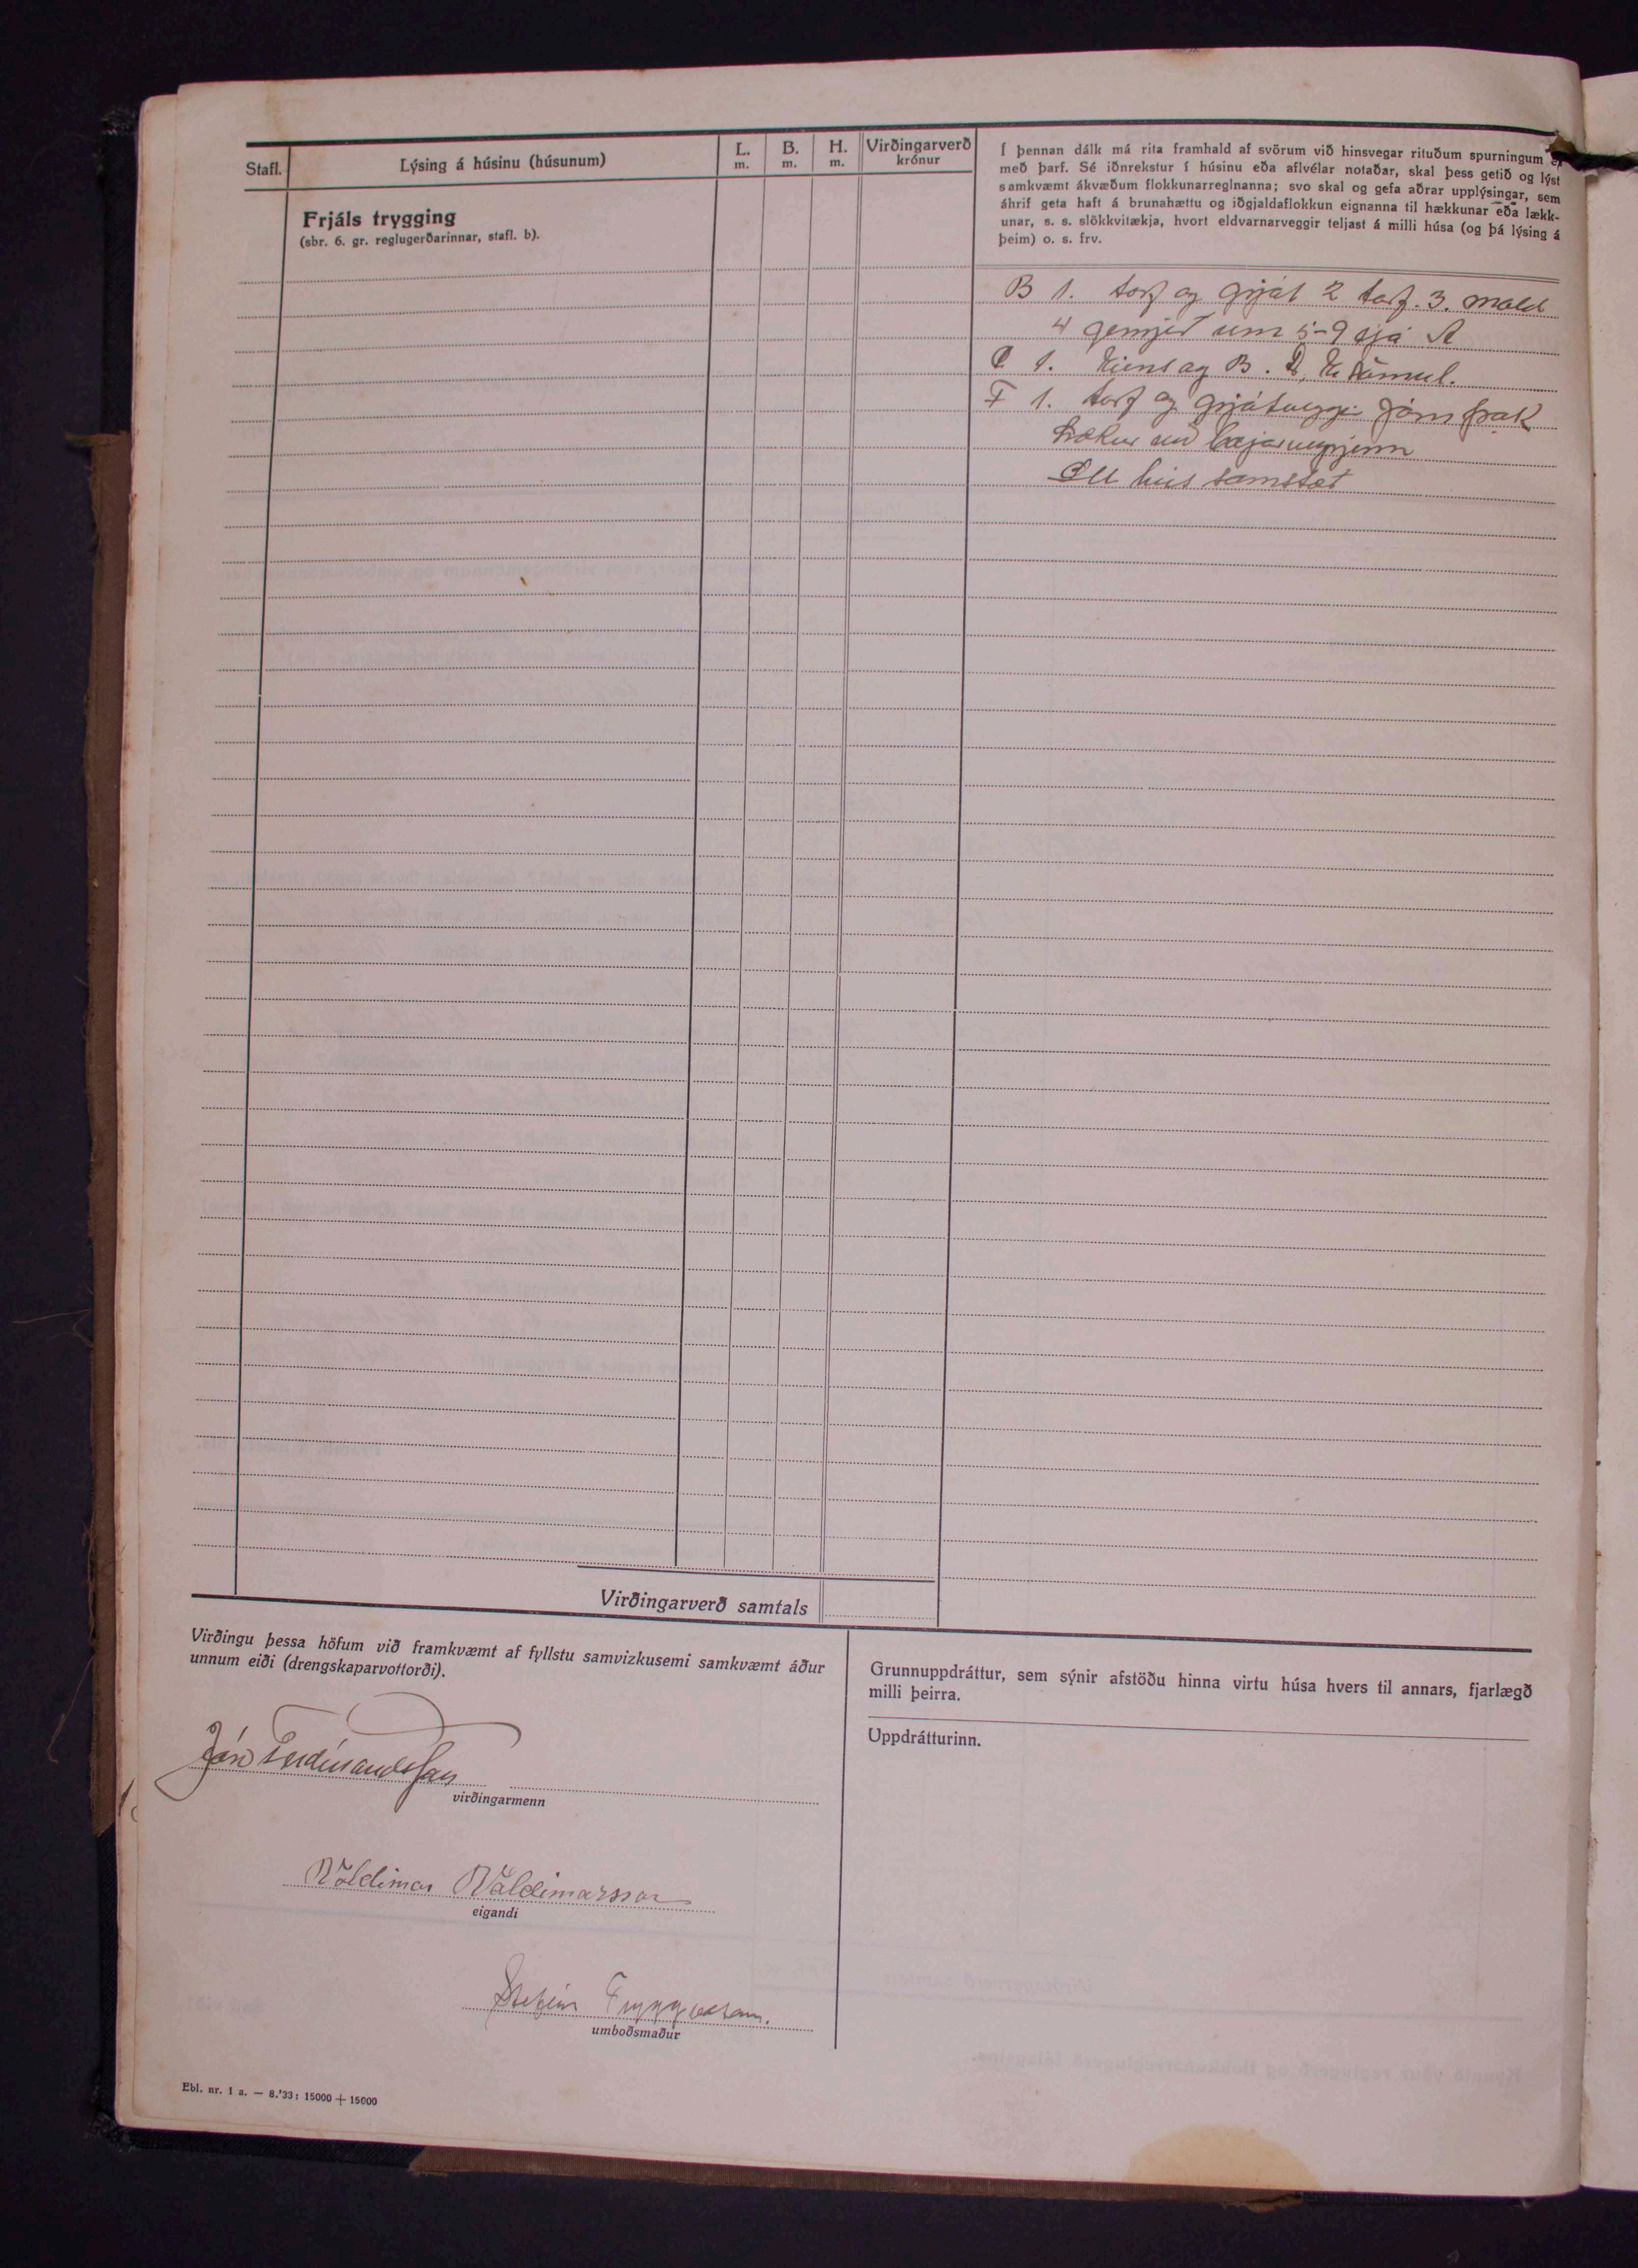 Stafl.
Lýsing á húsinu (húsunum)
L.
m.
B.
m.
H.
m.
Virðingarverð
krónur
Frjáls trygging
(sbr. 6. gr. reglugerðarinnar, stafl. b).
Í þennan dálk má rita framhald af svörum við hinsvegar rituðum spurningum ef
með þarf. Sé iðnrekstur í húsinu eða aflvélar notaðar, skal þess getið og lýst
samkvæmt ákvæðum flokkunarreglnanna; svo skal og gefa aðrar upplýsingar, sem
áhrif geta haft á brunahættu og iðgjaldaflokkun eignanna til hækkunar eða lækk-
unar, s. s. slökkvitækja, hvort eldvarnarveggir teljast á milli húsa (og þá lýsing á
þeim) o. s. frv.
B 1. torf og grjót 2 torf. 3. mold
4 gemjet um 5-9 sjá A
C 1. Eins og B. D, E sömul.
F 1. torf og grjótveggir járnþak
Öll hús samstæt
Virðingarverð samtals
Virðingu þessa höfum við framkvæmt af fyllstu samvizkusemi samkvæmt áður
unnum eiði (drengskaparvottorði).
Jón Ferdínandsson
virðingarmenn
Valdimar Valdimarsson
eigandi
Stefán Tryggvason.
umboðsmaður
Grunnuppdráttur, sem sýnir afstöðu hinna virtu húsa hvers til annars, fjarlægð
milli þeirra.
Uppdrátturinn.
Ebl. nr. 1 a. — 8.'33: 15000 + 15000